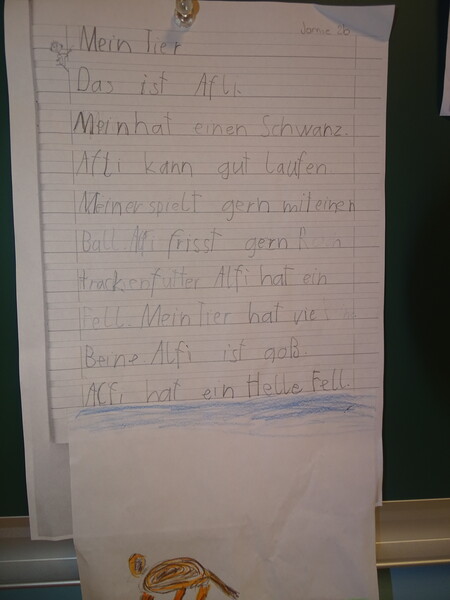 Mein Tier
Das ist Afli.
Meinhat einen Schwanz.
Afli kann gut laufen
Meiner spielt gern miteinen
Ball. Alfi frisst gern
trackenfutter Alfi hat ein
Fell. Mein Tier hat
Beine Alfi ist goß.
Alfi hat ein Helle Fell.